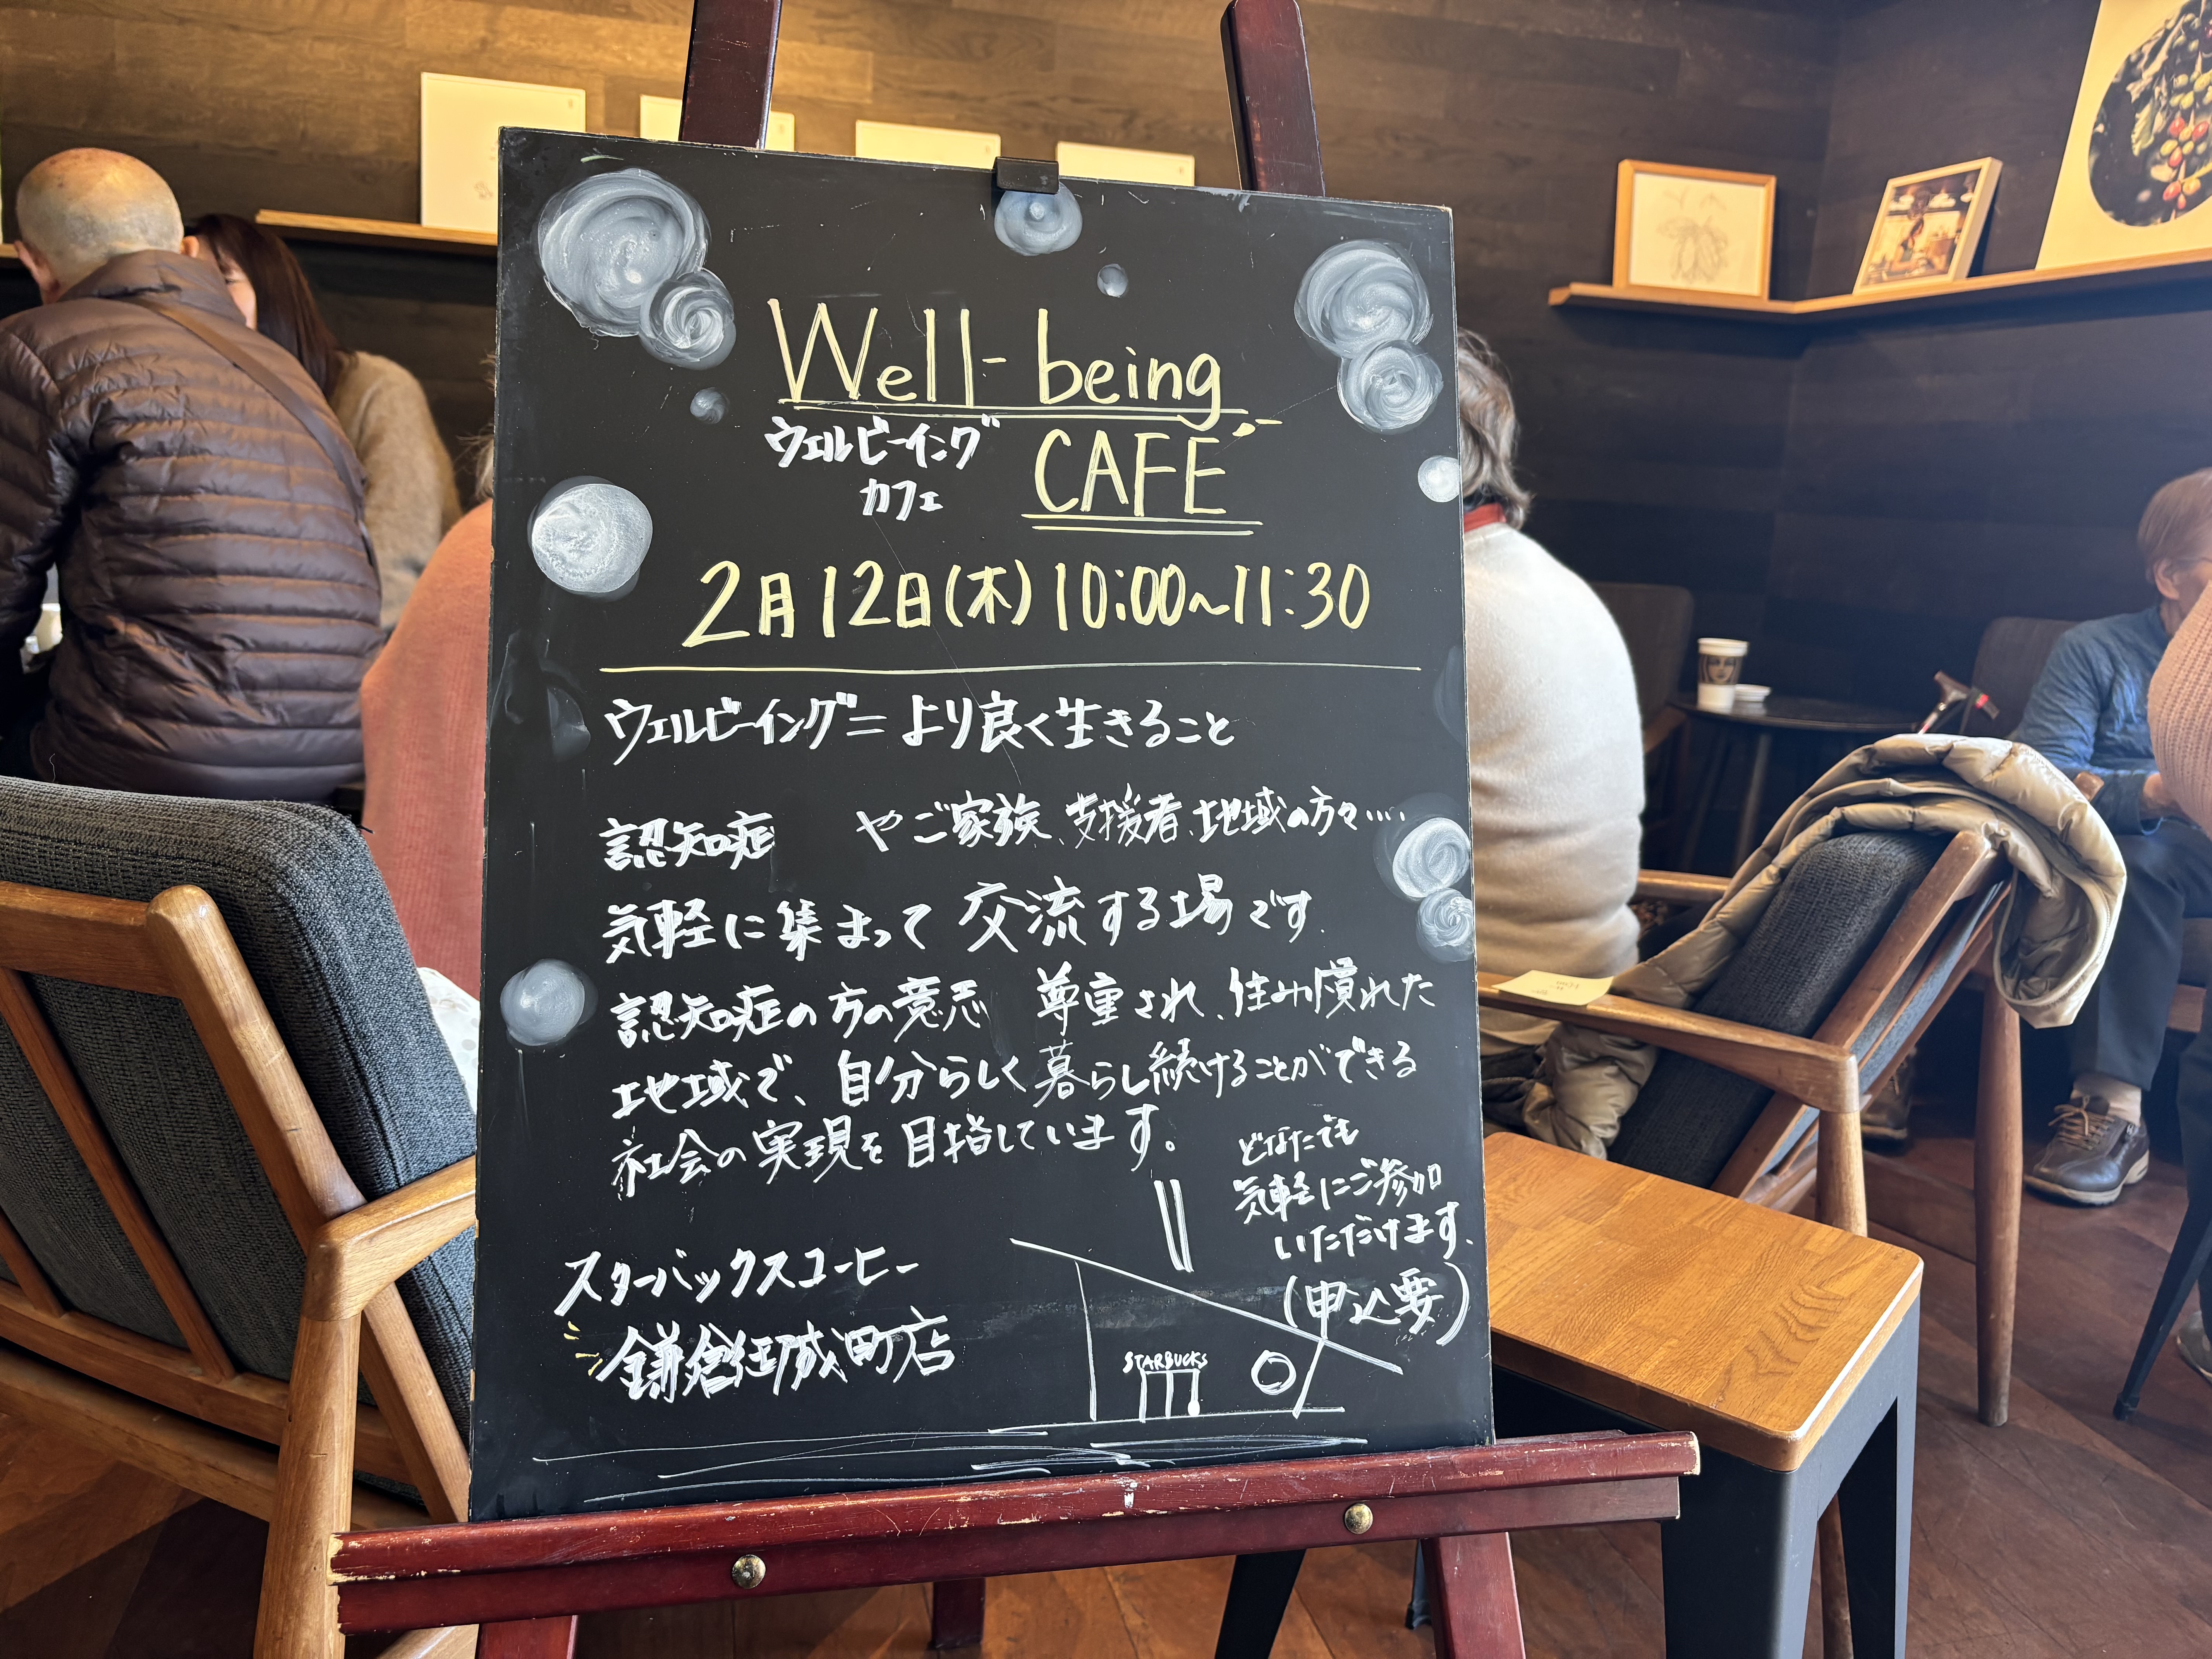 Well-being
ウェルビーイング
カフェ
CAFE
2月12日(木)10:00~11:30
ウェルビーイング=より良く生きること
認知症 やご家族、支援者、地域の方々…
気軽に集まって交流する場です.
認知症の方の意志 尊重され、住み慣れた
地域で、自分らしく暮らし続けることができる
社会の実現を目指しています。
どなたでも
気軽にご参加
いただけます.
(申込要)
スターバックスコーヒー
鎌倉御成町店
STARBUCKS